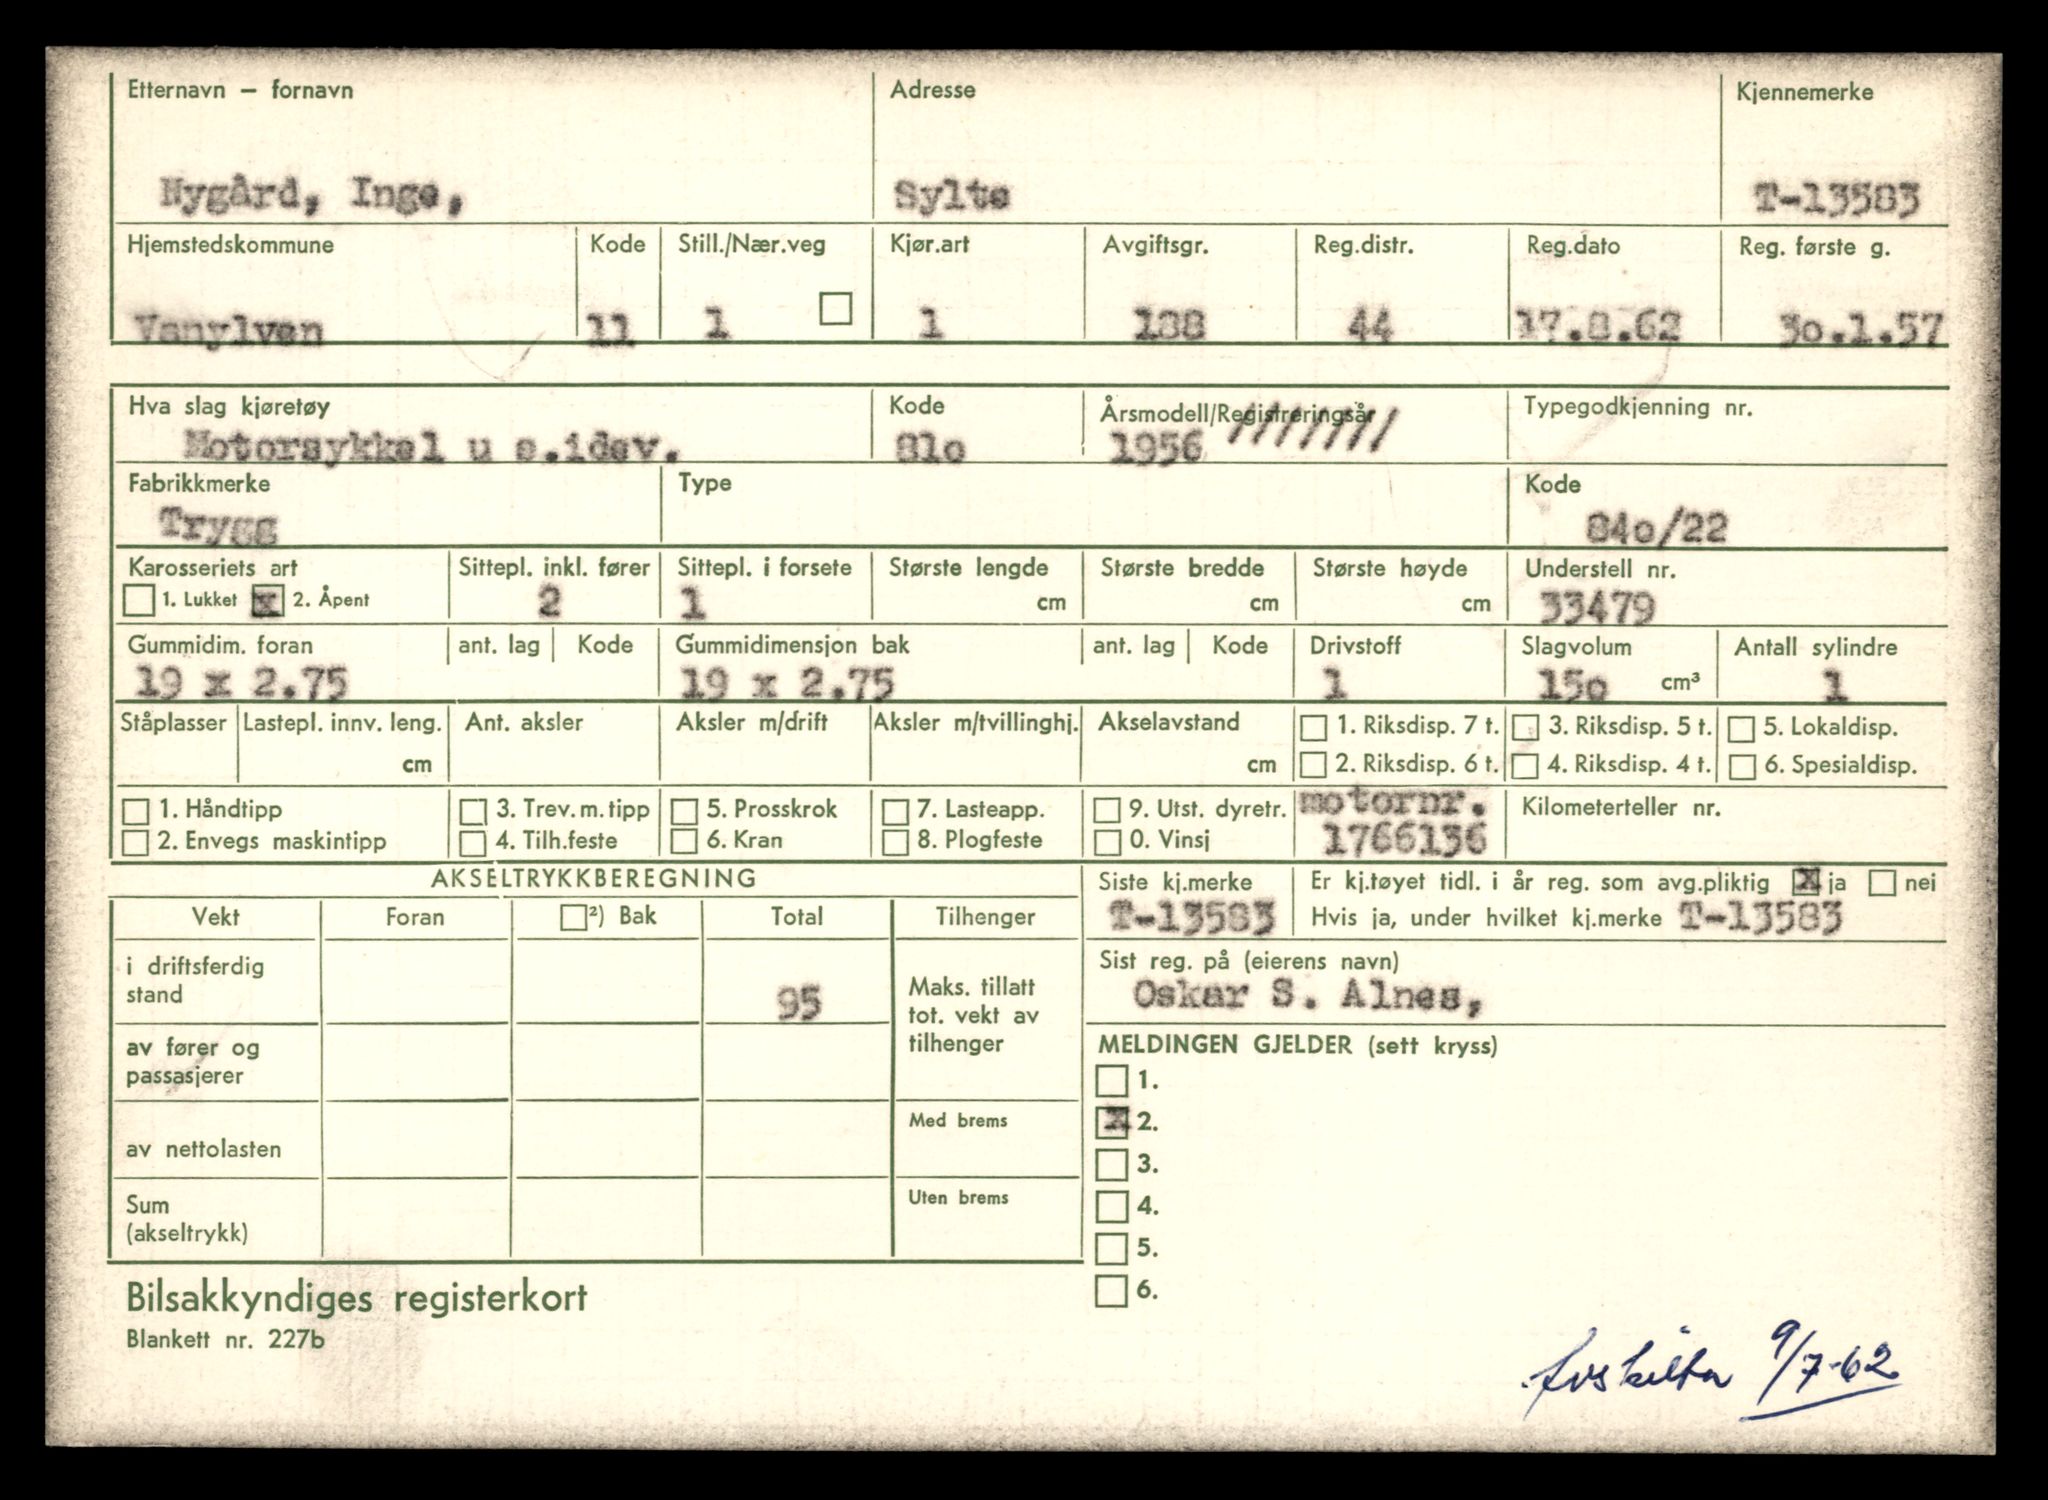 Etternavn – fornavn Adresse Kjennemerke
Nygård, Inge, Sylte T-13583
Hjemstedskommune Kode Still./Nær.veg Kjør.art Avgiftsgr. Reg.distr. Reg.dato Reg. første g.
Vanylven 11 1 1 188 44 17.8.62 30.1.57
Hva slag kjøretøy Kode Årsmodell/Registreringsår Typegodkjenning nr.
Motorsykkel u s.idev. 810 1956 ////////
Fabrikkmerke Type Kode
Trygg 840/22
Karosseriets art Sittepl. inkl. fører Sittepl. i forsete Største lengde Største bredde Største høyde Understell nr.
1. Lukket x 2. Åpent 2 1 cm cm cm 33479
Gummidim. foran ant. lag Kode Gummidimensjon bak ant. lag Kode Drivstoff Slagvolum Antall sylindre
19 x 2.75 19 x 2.75 1 150 cm³ 1
Ståplasser Lastepl. innv. leng. Ant. aksler Aksler m/drift Aksler m/tvillinghj. Akselavstand 1. Riksdisp. 7 t. 3. Riksdisp. 5 t. 5. Lokaldisp.
cm cm 2. Riksdisp. 6 t. 4. Riksdisp. 4 t. 6. Spesialdisp.
1. Håndtipp 3. Trev. m. tipp 5. Prosskrok 7. Lasteapp. 9. Utst. dyretr. motornr. Kilometerteller nr.
2. Envegs maskintipp 4. Tilh.feste 6. Kran 8. Plogfeste 0. Vinsj 1766136
AKSELTRYKKBEREGNING Siste kj.merke Er kj.tøyet tidl. i år reg. som avg.pliktig x ja nei
Vekt Foran ²) Bak Total Tilhenger T-13583 Hvis ja, under hvilket kj.merke T-13583
i driftsferdig stand 95 Maks. tillatt tot. vekt av tilhenger Sist reg. på (eierens navn)
Oskar S. Alnes,
av fører og passasjerer MELDINGEN GJELDER (sett kryss)
1.
av nettolasten Med brems x 2.
3.
Sum (akseltrykk) Uten brems 4.
5.
Bilsakkyndiges registerkort 6.
Blankett nr. 227b
Avskilta 9/7-62